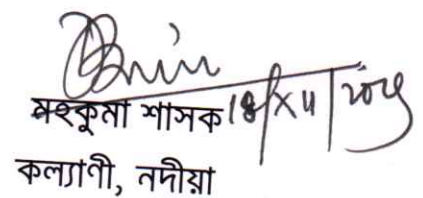 মহকুমা শাসক 18/XII/
কল্যাণী, নদীয়া